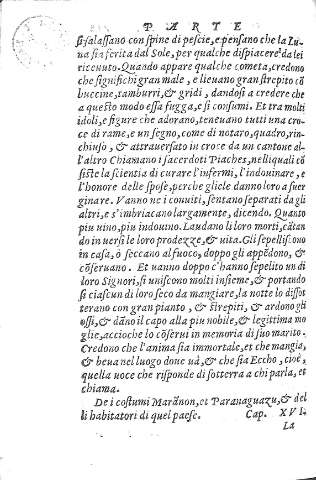 PARTE
si salassano con spine di pescie, e pensano che la Lu-
na sia ferita dal Sole, per qualche dispiacere da lei
riceuuto. Quando appare qualche cometa, credono
che significhi gran male, e lieuano gran strepito cõ
buccine, tamburri, & gridi, dandosi a credere che
a questo modo essa fugga, e si consumi. Et tra molti
idoli, e figure che adorano, teneuano tutti una cro-
ce di rame, e un segno, come di notaro, quadro, rin-
chiuso, & attrauersato in croce da un cantone al-
l'altro Chiamano i sacerdoti Piaches, nelliquali cõ
siste la scientia di curare l'infermi, l'indouinare, e
l'honore delle spose, perche glicle danno loro a suer
ginare. Vanno ne i conuiti, sentano separati da gli
altri, e s'imbriacano largamente, dicendo. Quanto
piu uino, piu indouino. Laudano li loro morti, cãtan
do in uersi le loro prodezze, & uita. Gli sepelliscono
in casa, ò seccano al fuoco, doppo gli appẽdono, &
cõseruano. Et uanno doppo c'hanno sepelito un di
loro Signori, si uniscono molti insieme, & portando
si ciascun di loro seco da mangiare, la notte lo dissot
terano con gran pianto, & strepiti, & ardono gli
ossi, & dãno il capo alla piu nobile, & legittima mo
glie, accioche lo cõserui in memoria di suo marito.
Credono che l'anima sia immortale, et che mangia,
& beua nel luogo doue uà, & che sia Eccho, cioè,
quella uoce che risponde di sotterra a chi parla, et
chiama.
De i costumi Marãnon, et Paranaguazu, & del
li habitatori di quel paese. Cap. XVI.
La